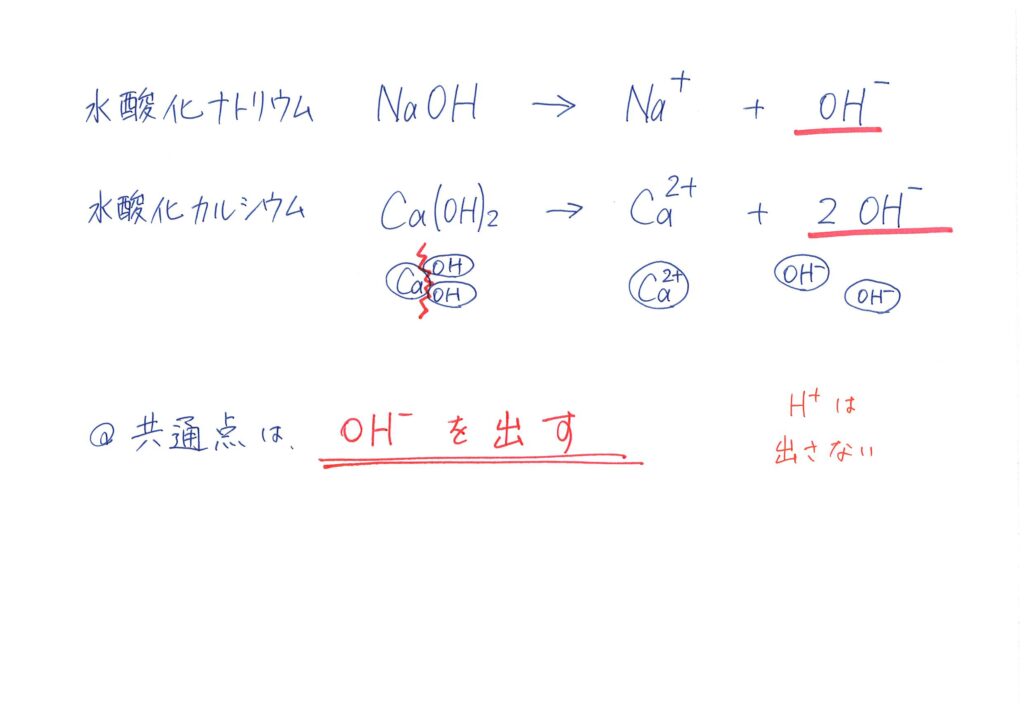 水酸化ナトリウム NaOH → Na⁺ + OH⁻
水酸化カルシウム Ca(OH)₂ → Ca²⁺ + 2 OH⁻
Ca OH OH Ca²⁺ OH⁻ OH⁻
@ 共通点は、 OH⁻ を 出す
H⁺ は
出さない